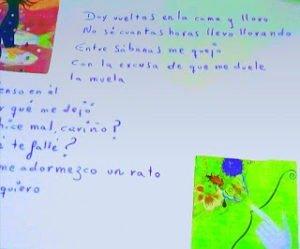 Doy vueltas en la cama y lloro
No sé cuantas horas llevo llorando
Entre sábanas me quejo
con la excusa de que me duele
la muela
enso en él
r qué me dejó
hice mal, cariño?
te fallé?
me adormezco un rato
quiero